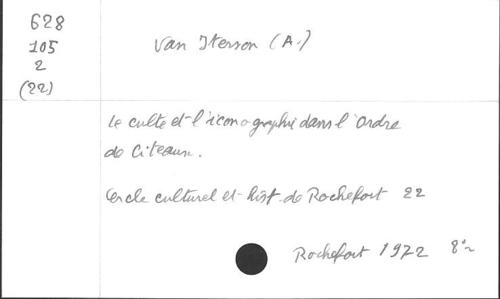 628
105
2
(22)
Van Iterson (A.)
Le culte et l'iconographie dans l'Ordre
de Citeaux.
Cercle culturel et hist. de Rochefort 22
Rochefort 1972 8°